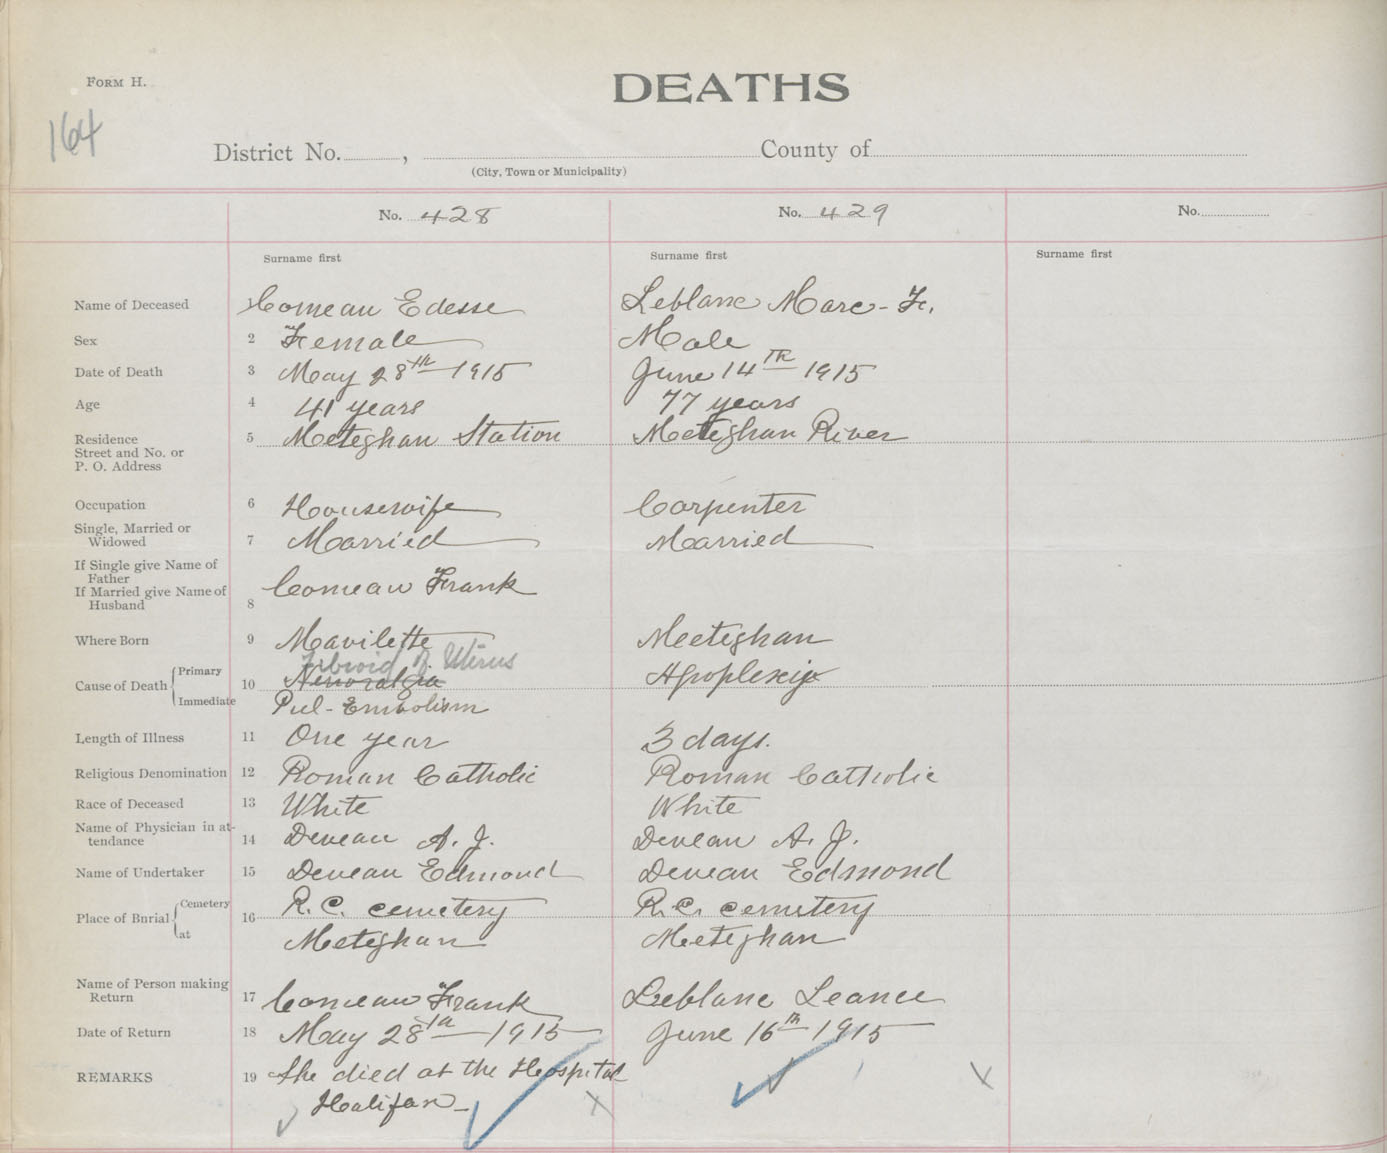 FORM H.
DEATHS
164
District No. , County of
(City, Town or Municipality)
No. 428 No. 429 No.
Surname first Surname first Surname first
Name of Deceased 1 Comeau Edesse Leblanc Marc-Fr.
Sex 2 Female Male
Date of Death 3 May 28th 1915 June 14TH 1915
Age 4 41 years 77 years
Residence 5 Meteghan Station Meeteghan River
Street and No. or
P. O. Address
Occupation 6 Housewife Carpenter
Single, Married or
Widowed 7 Married Married
If Single give Name of
Father
If Married give Name of Comeau Frank
Husband 8
Where Born 9 Mavilette Meeteghan
Fibroid of Uterus
Cause of Death Primary 10 Apoplexy
Immediate Pul-Embolism
Length of Illness 11 One year 3 days.
Religious Denomination 12 Roman Catholic Roman Catholic
Race of Deceased 13 White White
Name of Physician in at-
tendance 14 Deveau A. J. Deveau A. J.
Name of Undertaker 15 Deveau Edmond Deveau Edmond
Place of Burial Cemetery 16 R.C. cemetery R.C. cemetery
at Meteghan Meeteghan
Name of Person making
Return 17 Comeau Frank Leblanc Leance
Date of Return 18 May 28th 1915 June 16th 1915
REMARKS 19 She died at the Hospital
Halifax